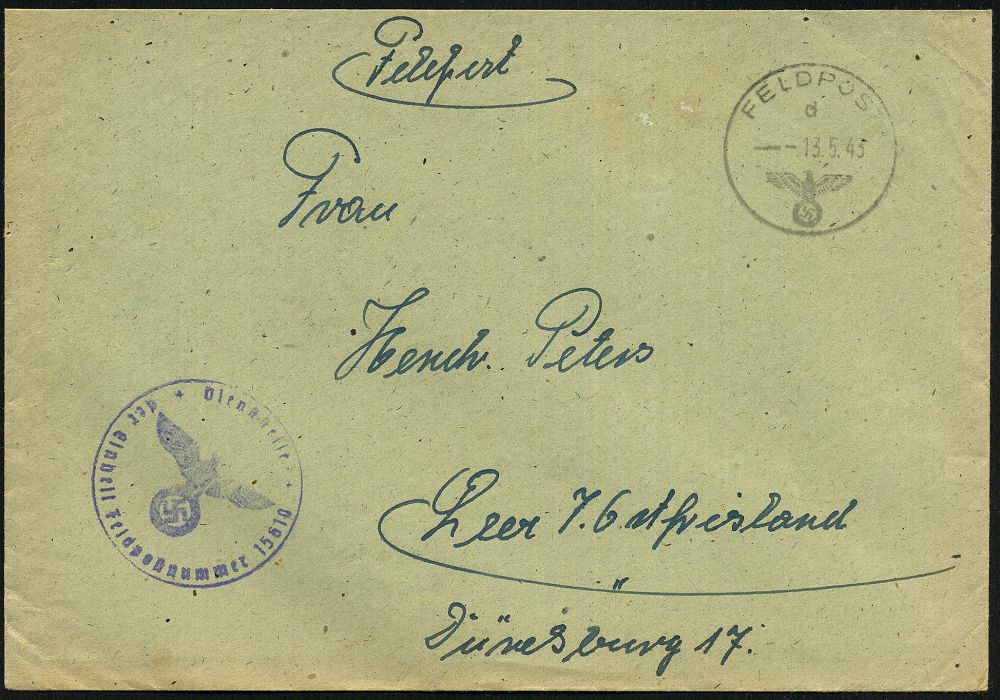 Feldpost
FELDPOST
d
-13.5.43
Frau
Hendr. Peters
Dienststelle + der Einheit Feldpostnummer 15610 +
Leer i. Ostfriesland
Düresburg 17.